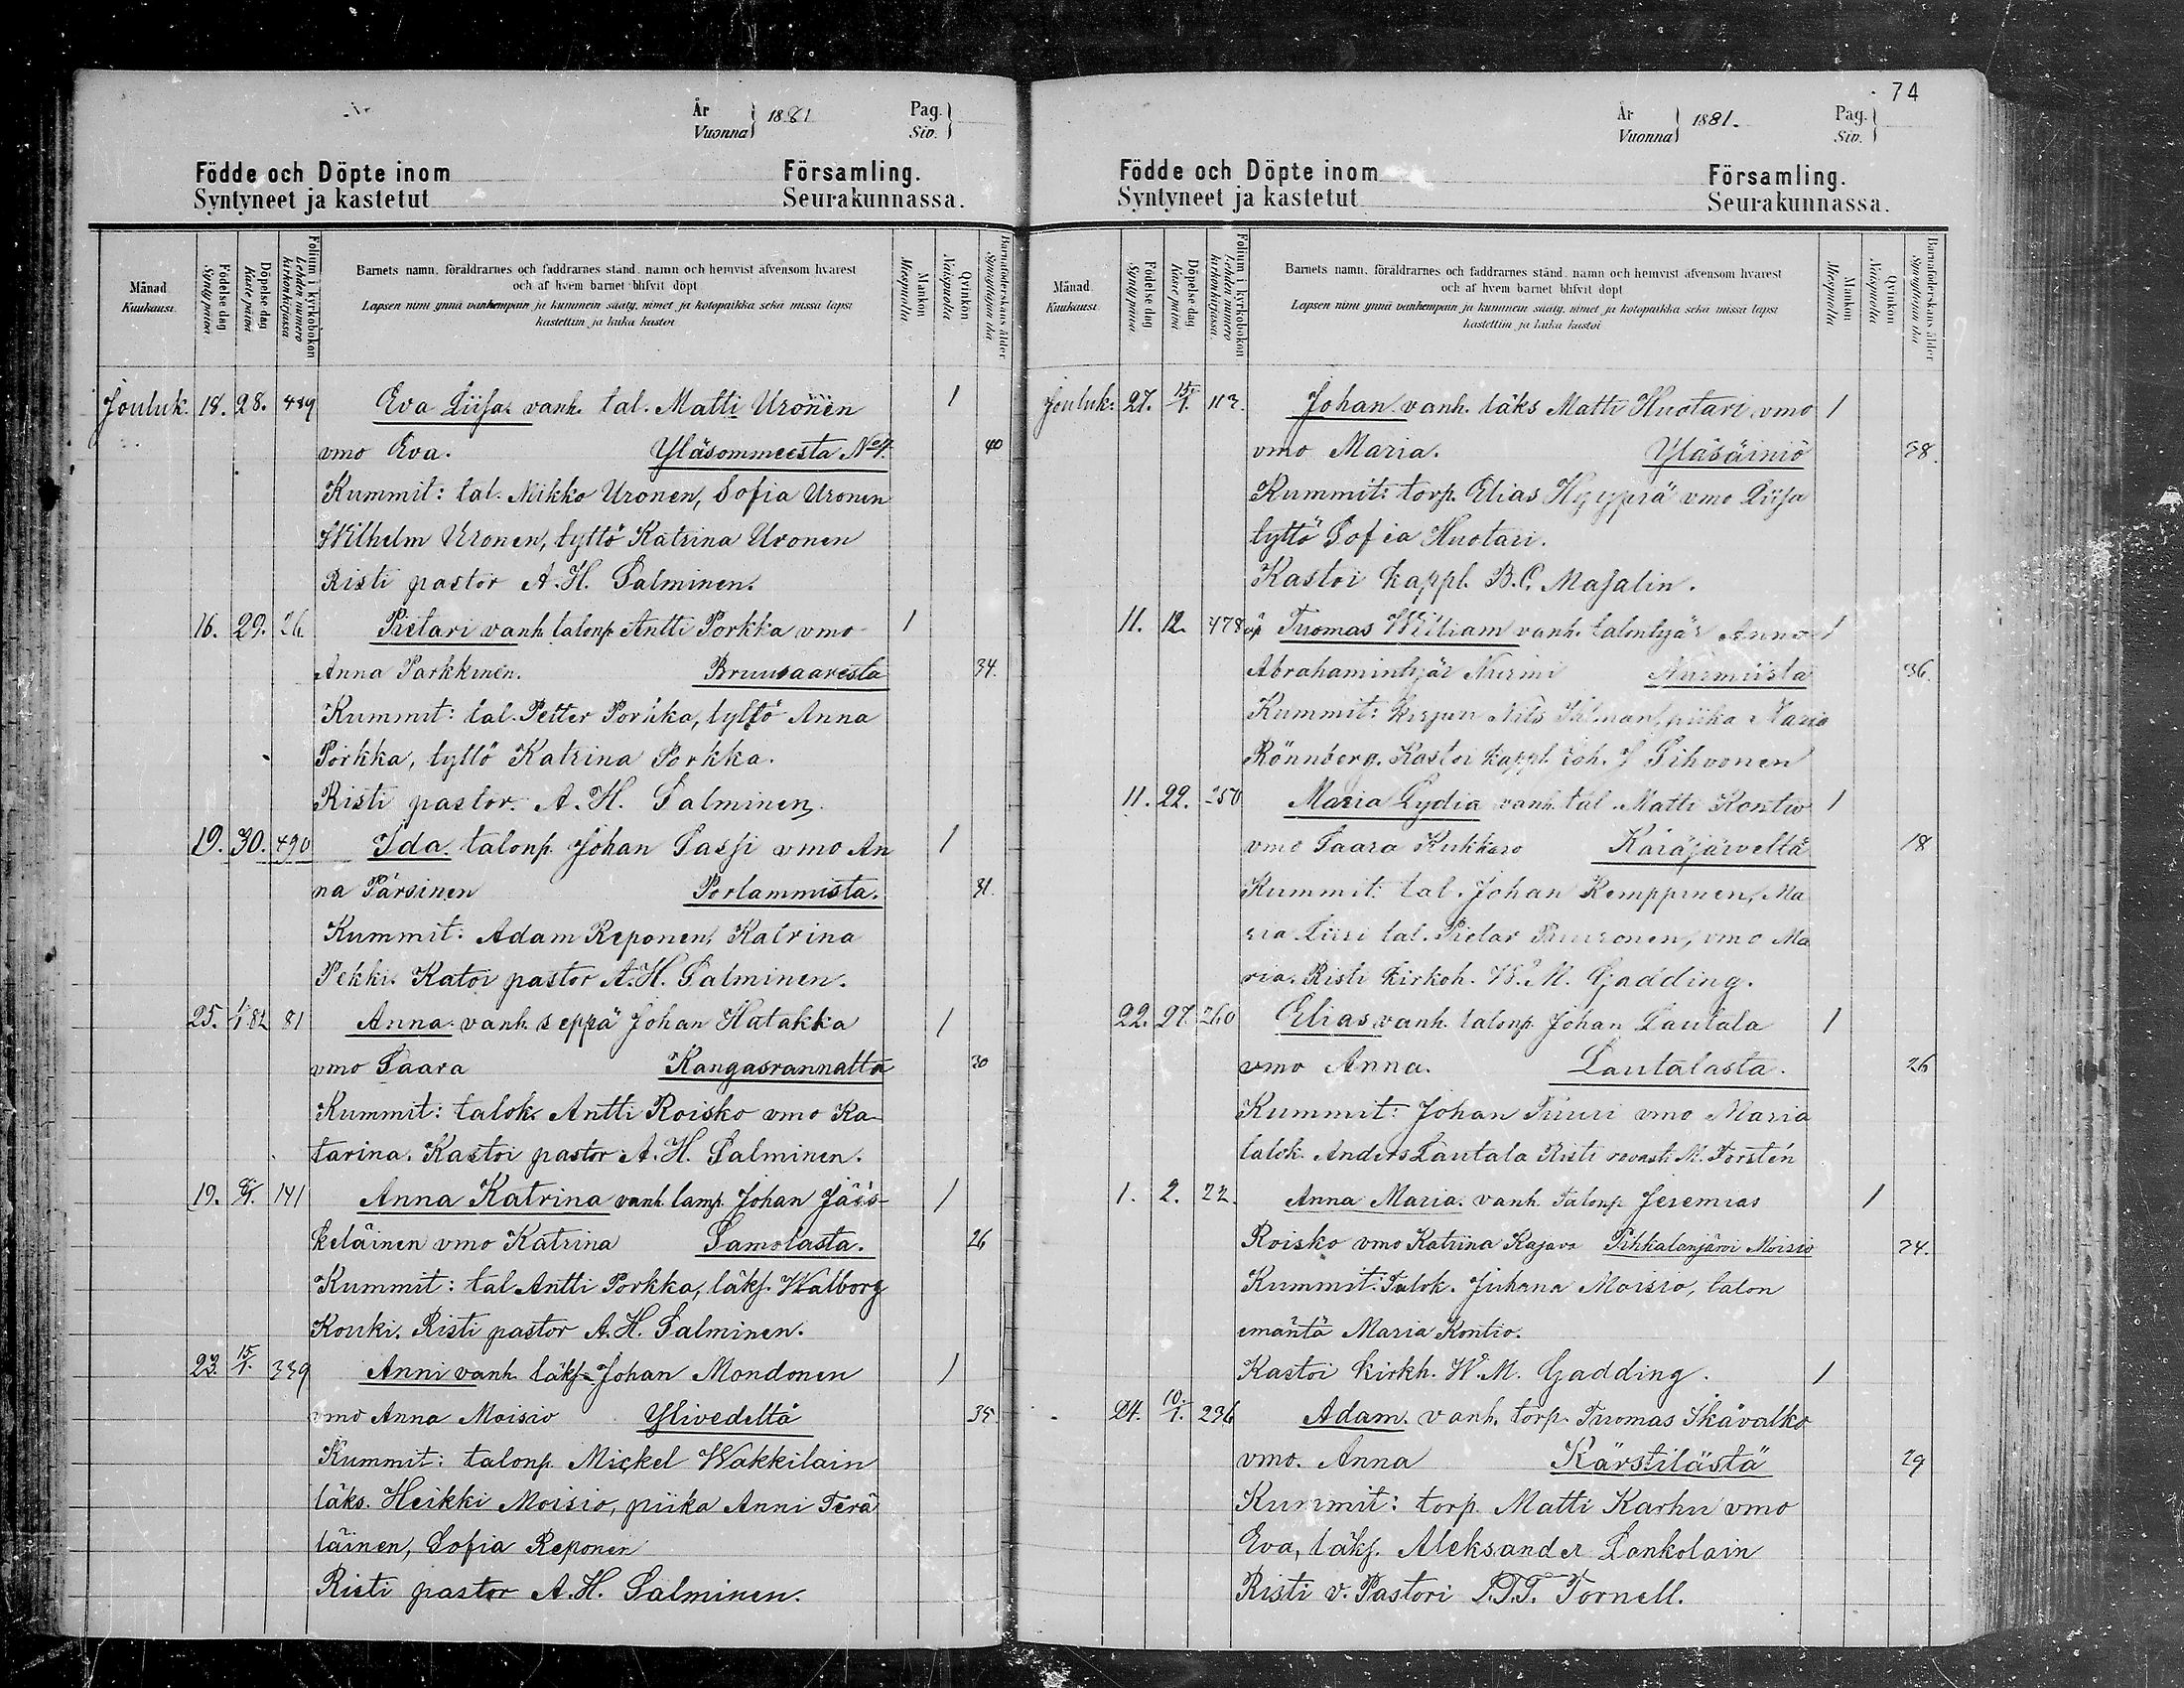 År
Vuonna } 1881
Pag.
Siv. }
Födde och Döpte inom Församling.
Syntyneet ja kastetut Seurakunnassa.
Månad
Kuukausi.
Födelsedag
Syntypäivä
Döpelsedag
Kastepäivä
Folium i kyrkobokon
Lehden numero kirkonkirjassa
Barnets namn, föräldrarnes och faddrarnes stånd, namn och hemvist äfvensom hvarest
och af hvem barnet blifvit döpt
Lapsen nimi ynnä vanhempain ja kummein sääty, nimet ja kotopaikka sekä missä lapsi
kastettiin ja kuka kastoi
Mankön
Miespuolia
Qvinkön
Naispuolia
Barnaföderskans ålder
Synnyttäjän ikä
Jouluk. 18. 28. 489 Eva Liisa vanh. tal. Matti Uronen 1
vmo Eva. Yläsommeesta No 4. 40
Kummit: tal. Mikko Uronen, Sofia Uronen
Wilhelm Uronen, tyttö Katrina Uronen
Risti pastor A. H. Salminen.
16. 29. 26 Pietari vanh. talonp. Antti Porkka vmo 1
Anna Parkkinen. Bruusaaresta 34.
Kummit: tal. Petter Porkka, tyttö Anna
Porkka, tyttö Katrina Porkka.
Risti pastor. A. H. Salminen.
19. 30. 490 Ida. talonp. Johan Sassi vmo An 1
na Pärsinen Porlammista. 31.
Kummit: Adam Reponen, Katrina
Pekki. Katoi pastor A. H. Salminen.
25. 1/1 82 81 Anna vanh. seppä Johan Hatakka 1
vmo Saara Kangasrannatta 30
Kummit: talok. Antti Roisko vmo Ka-
tarina. Kastoi pastor A. H. Salminen.
19. 141 Anna Katrina vanh. lamp. Johan Jääs- 1
keläinen vmo Katrina Samolasta. 26
Kummit: tal Antti Porkka, läks. Walborg
Kouki. Risti pastor A. H. Salminen.
23. 15/1. 339 Anni vanh. läks. Johan Mondonen 1
vmo Anna Moisio Ylivedeltä 35.
Kummit: talonp. Mickel Wakkilain
läks. Heikki Moisio, piika Anni Terä
läinen, Sofia Reponen
Risti pastor A. H. Salminen.
74
År
Vuonna } 1881.
Pag.
Siv. }
Födde och Döpte inom Församling.
Syntyneet ja kastetut Seurakunnassa.
Månad
Kuukausi.
Födelsedag
Syntypäivä
Döpelsedag
Kastepäivä
Folium i kyrkobokon
Lehden numero kirkonkirjassa
Barnets namn, föräldrarnes och faddrarnes stånd, namn och hemvist äfvensom hvarest
och af hvem barnet blifvit döpt
Lapsen nimi ynnä vanhempain ja kummein sääty, nimet ja kotopaikka sekä missä lapsi
kastettiin ja kuka kastoi
Mankön
Miespuolia
Qvinkön
Naispuolia
Barnaföderskans ålder
Synnyttäjän ikä
Jouluk. 27. 15/1. 113. Johan vanh. läks Matti Huotari vmo 1
vmo Maria. Yläsäiniö 38.
Kummit: torp. Elias Hyyprä vmo Liisa
tyttö Sofia Huotari.
Kastoi kappl. B. C. Masalin.
11. 12. 478 äp Tuomas Wiliam vanh. talontyär Anna 1
Abrahamintyär Nurmi Nurmiista 36.
Kummit: Nils Salman, piika Maria
Rönnberg. Kastoi kappl. Joh. J Sihvonen
11. 22. 250 Maria Lydia vanh. tal. Matti Kontio 1
vmo Saara Kukkaro Käräjärveltä 18
Kummit: tal. Johan Kemppinen, Ma
ria Liisi tal. Pietar Puuronen, vmo Ma
ria. Risti kirkoh. W. M. Gadding.
22. 27. 260 Elias vanh. talonp. Johan Lautala 1
vmo Anna. Lautalasta. 26
Kummit: Johan Tuuri vmo Maria
talok. Anders Lautala Risti rovasti M. Forstén
1. 2. 22. Anna Maria. vanh. Talonp. Jeremias 1
Roisko vmo Katriina Kajava Pihkalanjärvi Moisio 24.
Kummit: Talok. Juhana Moisio, talon
emäntä Maria Kontio.
Kastoi kirkh. W. M. Gadding. 1
24. 10/1. 236 Adam. vanh. torp. Tuomas Ikävalko
vmo. Anna Kärstilästä 29
Kummit: torp. Matti Karhu vmo
Eva, läks. Aleksander Lankolain
Risti v. Pastori T. Tornell.